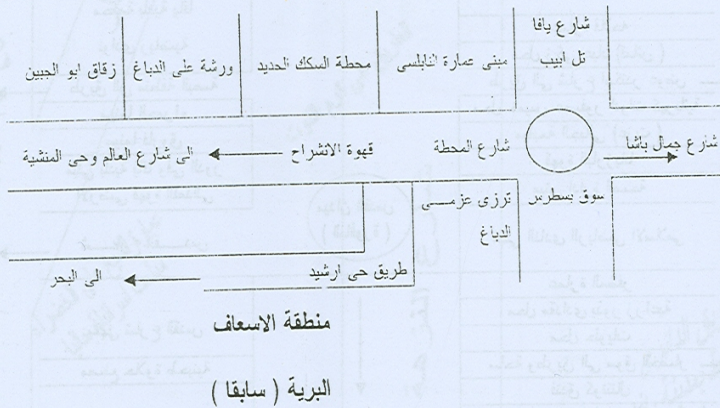 شارع يافا
تل ابيب
مبنى عمارة النابلسى
محطة السكك الحديد
ورشة على الدباغ
زقاق ابو الجبين
شارع جمال باشا
شارع المحطة
قهوة الانشراح
الى شارع العالم وحى المنشية
سوق بسطرس
ترزى عزمـــى
الدباغ
طريق حى ارشيد
الى البحر
منطقة الاسعاف
البرية ( سابقا )